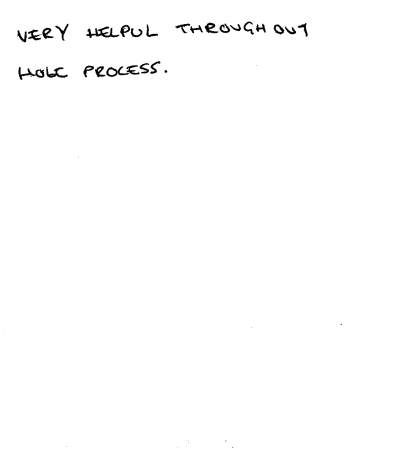 VERY HELPUL THROUGHOUT
HOLE PROCESS.